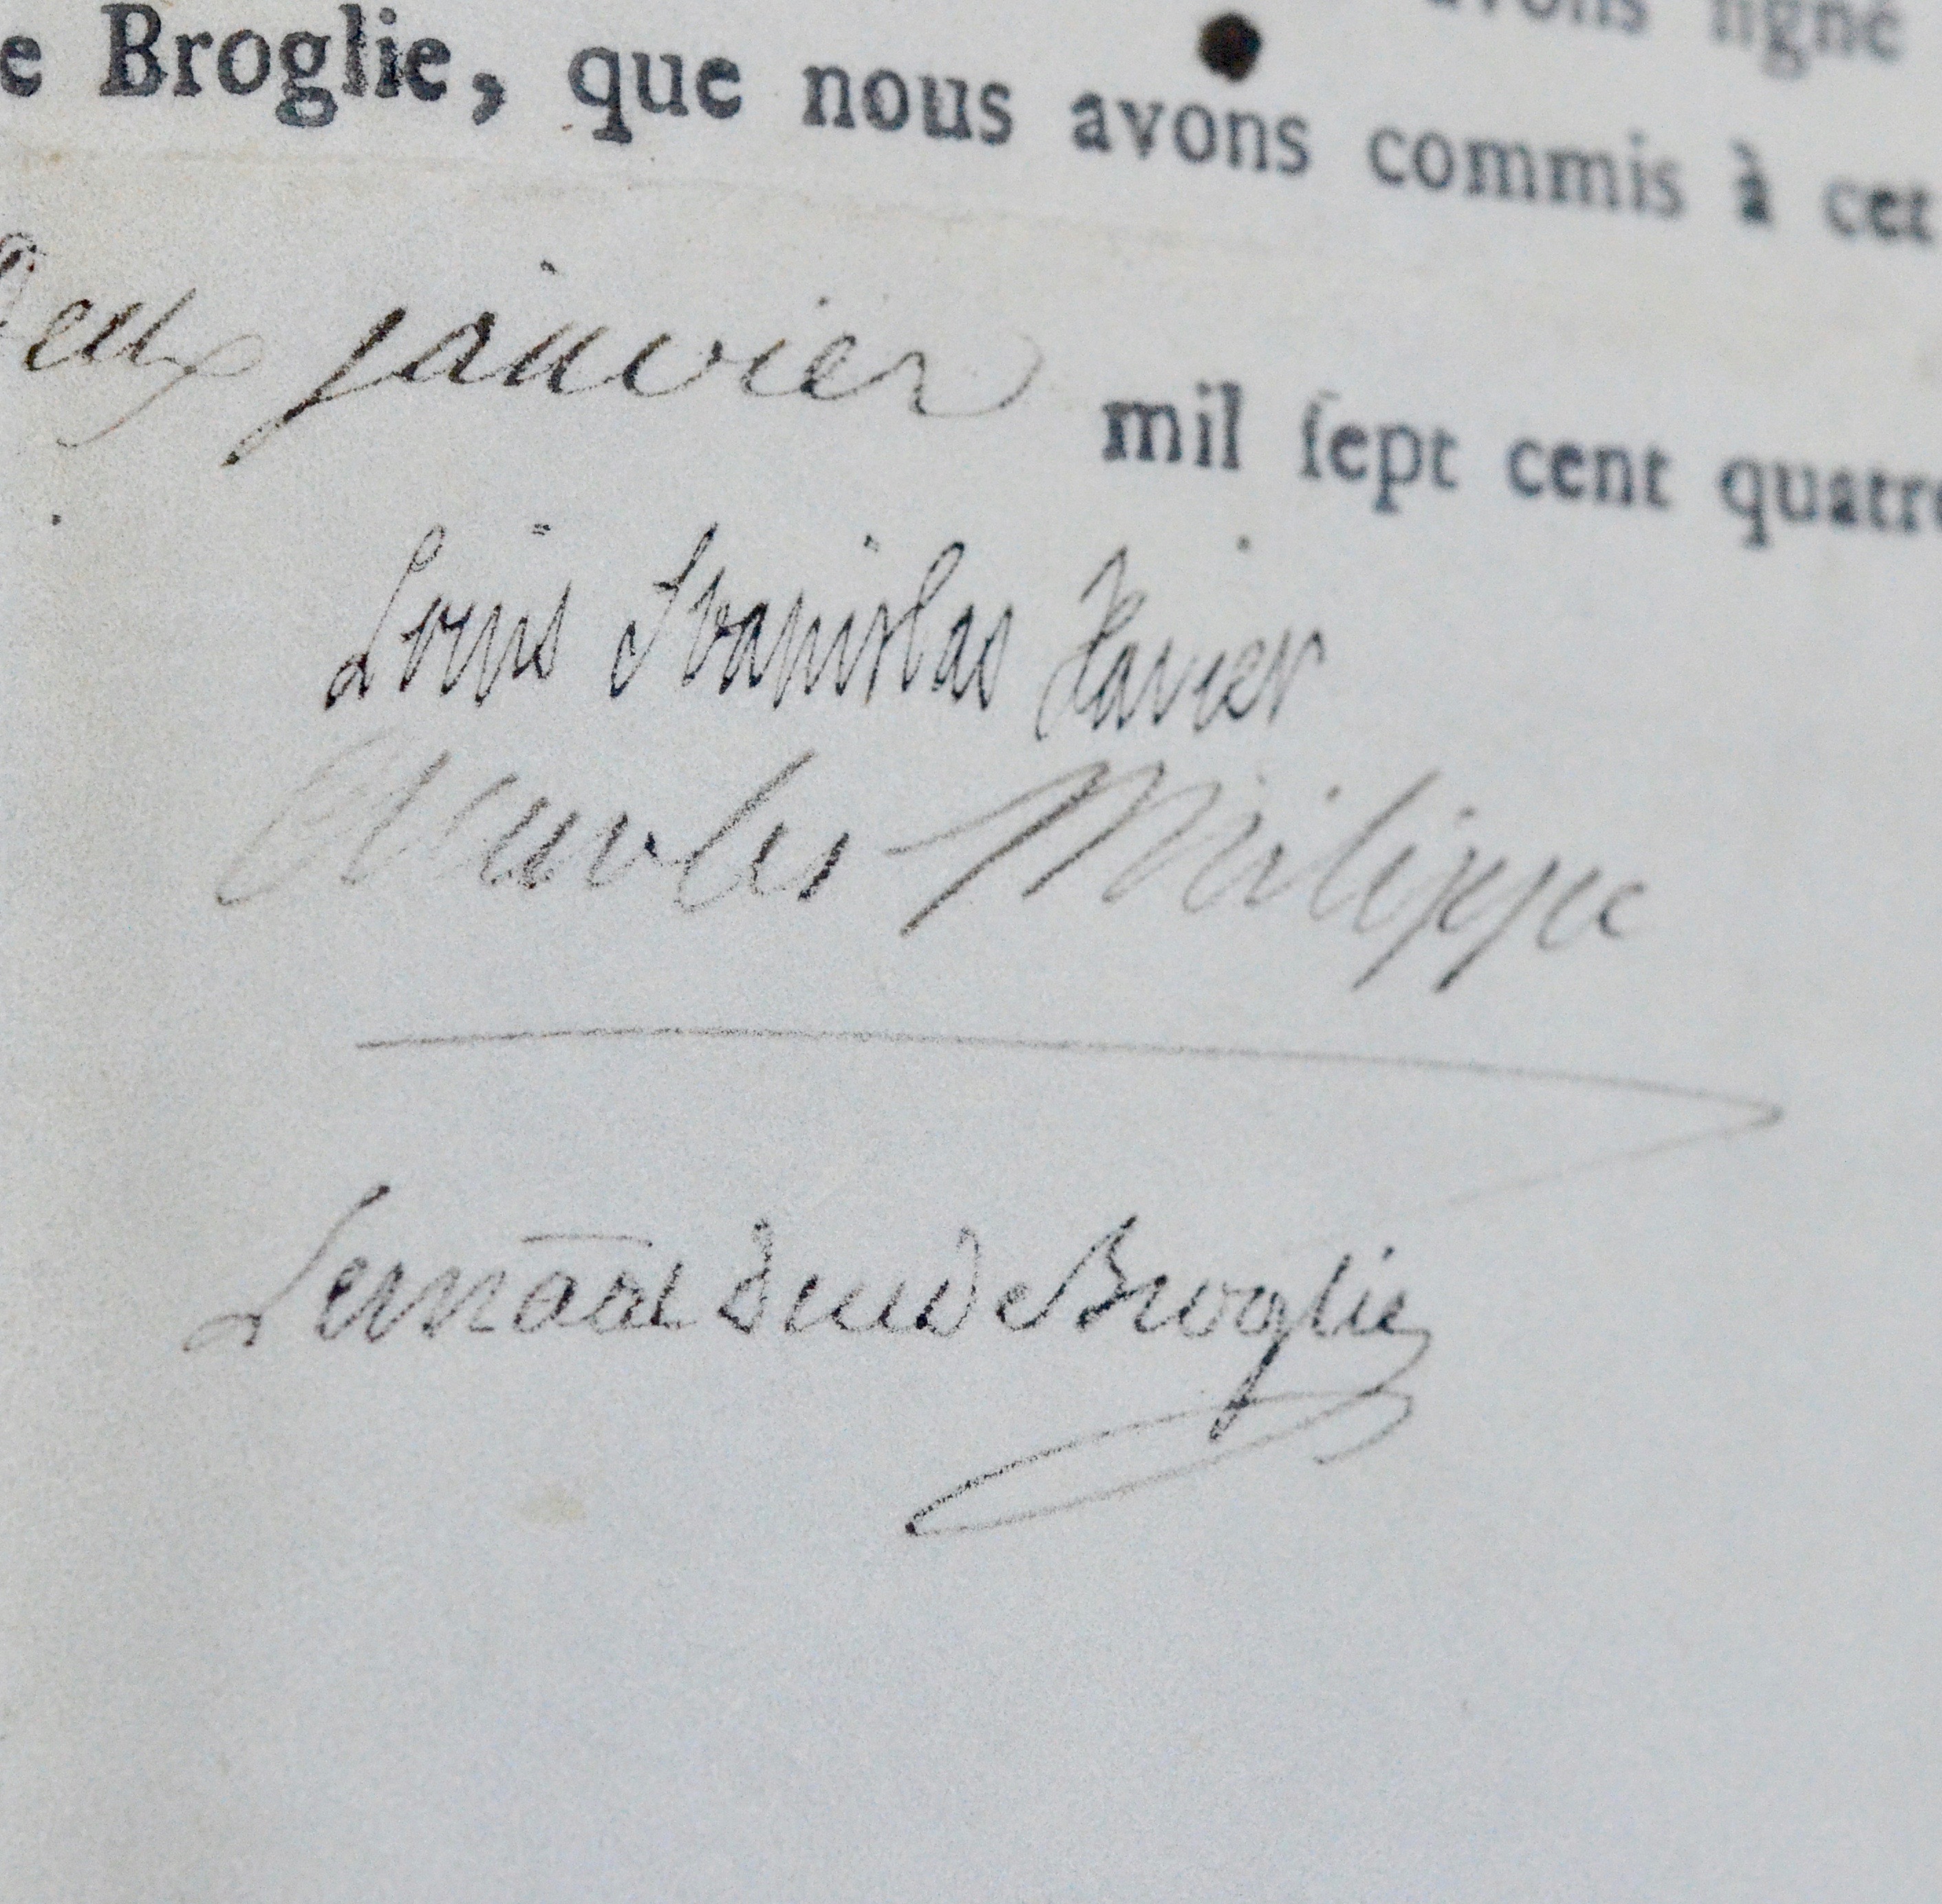 avons ſigné
e Broglie, que nous avons commis à cet
Deux janvier mil ſept cent quatre
Louis Stanislas Xavier
Charles Philippe
Le mãal Duc De Broglie